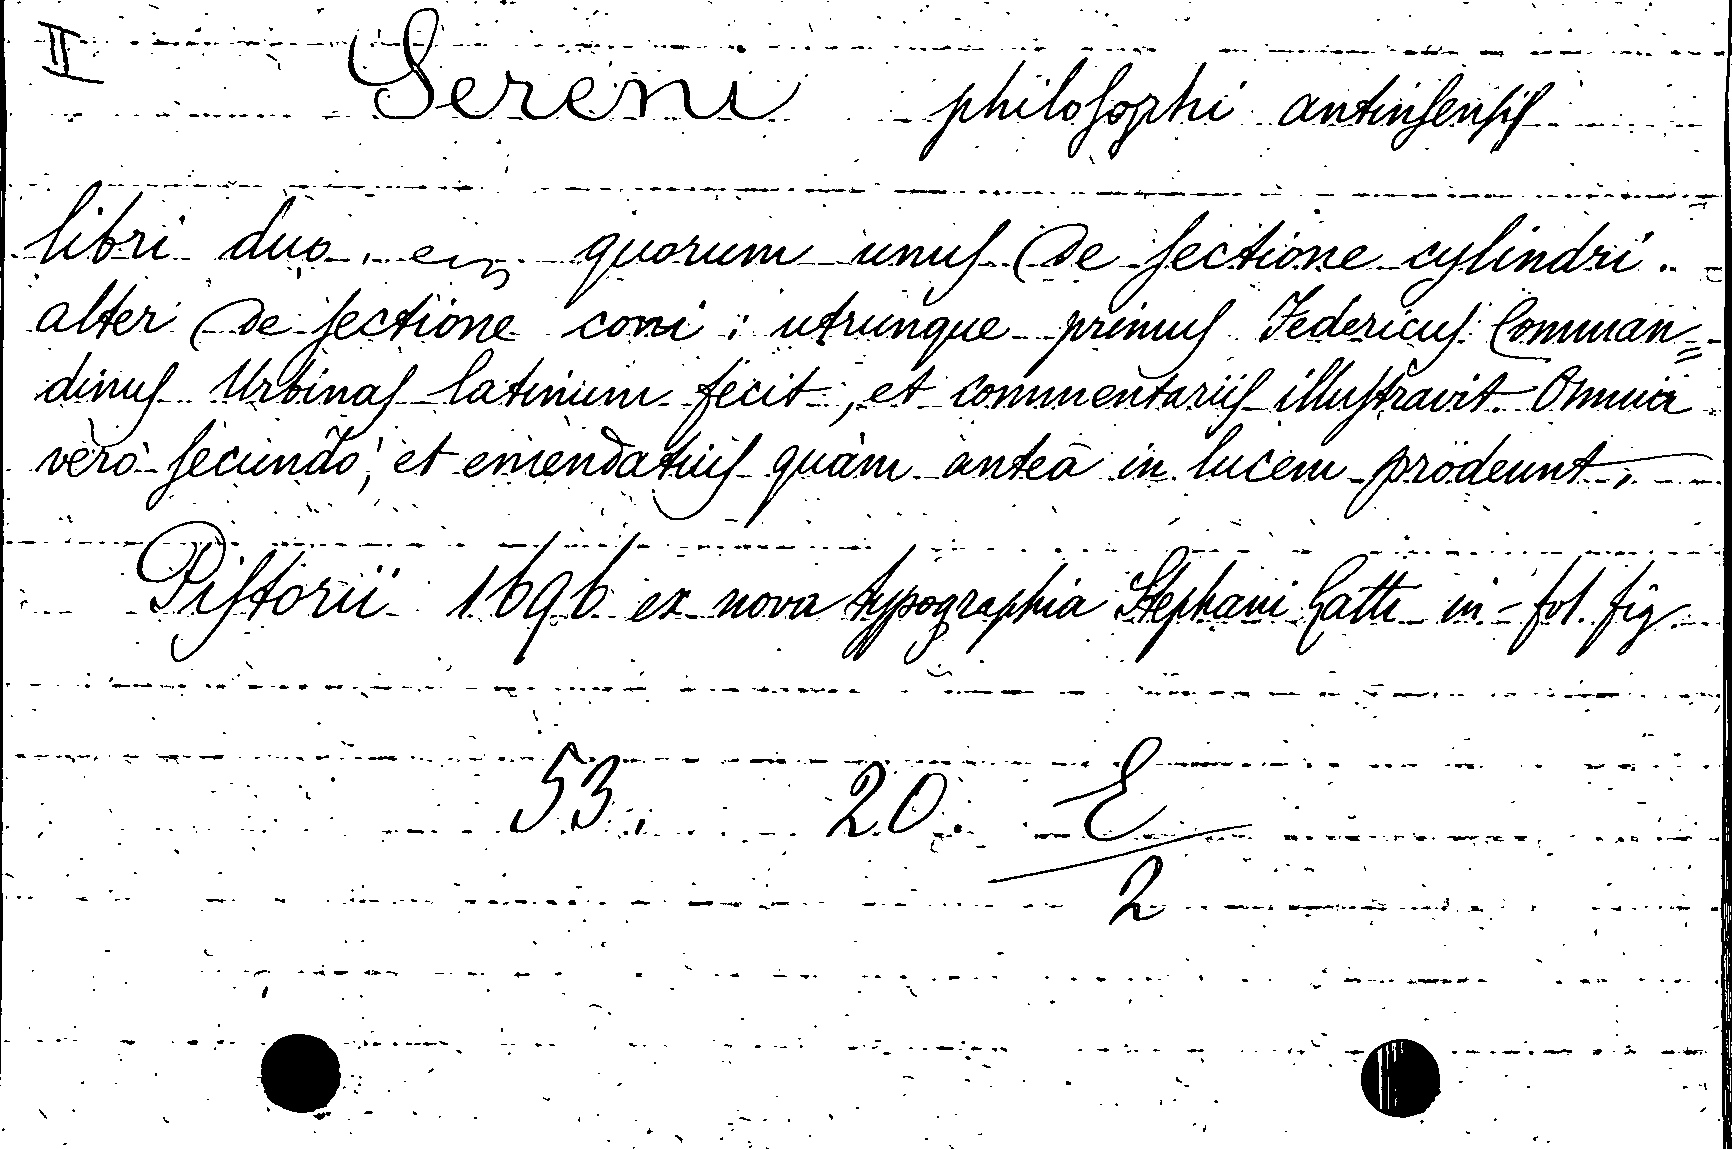 II
Sereni philosophi antinsensis
libri duo, quorum unus de sectione cylindri
alter de sectione coni : utrunque primus Federicus Comman=
dinus Urbinas latinum fecit, et commentariis illustravit. Omnia
verò secundò, et emendatius quàm anteà in lucem prodeunt.
Pistorii 1696 ex nova typographia Stephani Gatti in-fol. fig.
53. 20. E
2